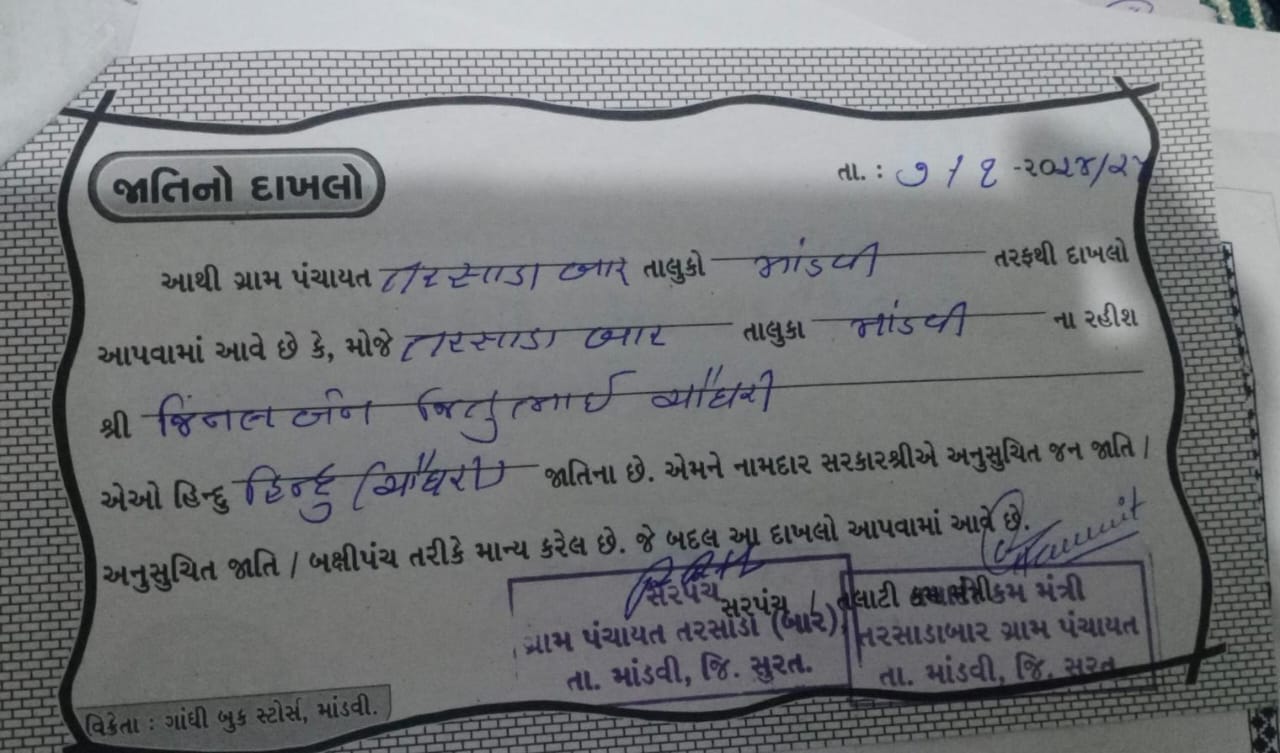 જાતિનો દાખલો
તા. : ૭ / ૧ -૨૦૨૪/૨૫
આથી ગ્રામ પંચાયત તરસાડા બાર તાલુકો માંડવી તરફથી દાખલો
આપવામાં આવે છે કે, મોજે તરસાડા બાર તાલુકા માંડવી ના રહીશ
શ્રી જિનલબેન જિતુભાઈ ચૌધરી
એઓ હિન્દુ હિન્દુ (ચૌધરી) જાતિના છે. એમને નામદાર સરકારશ્રીએ અનુસુચિત જન જાતિ /
અનુસુચિત જાતિ / બક્ષીપંચ તરીકે માન્ય કરેલ છે. જે બદલ આ દાખલો આપવામાં આવે છે.
સરપંચ / તલાટી કમ મંત્રી
સરપંચ
ગ્રામ પંચાયત તરસાડા (બાર)
તા. માંડવી, જિ. સુરત.
તલાટી કમ મંત્રી
તરસાડાબાર ગ્રામ પંચાયત
તા. માંડવી, જિ. સુરત
વિક્રેતા : ગાંધી બુક સ્ટોર્સ, માંડવી.